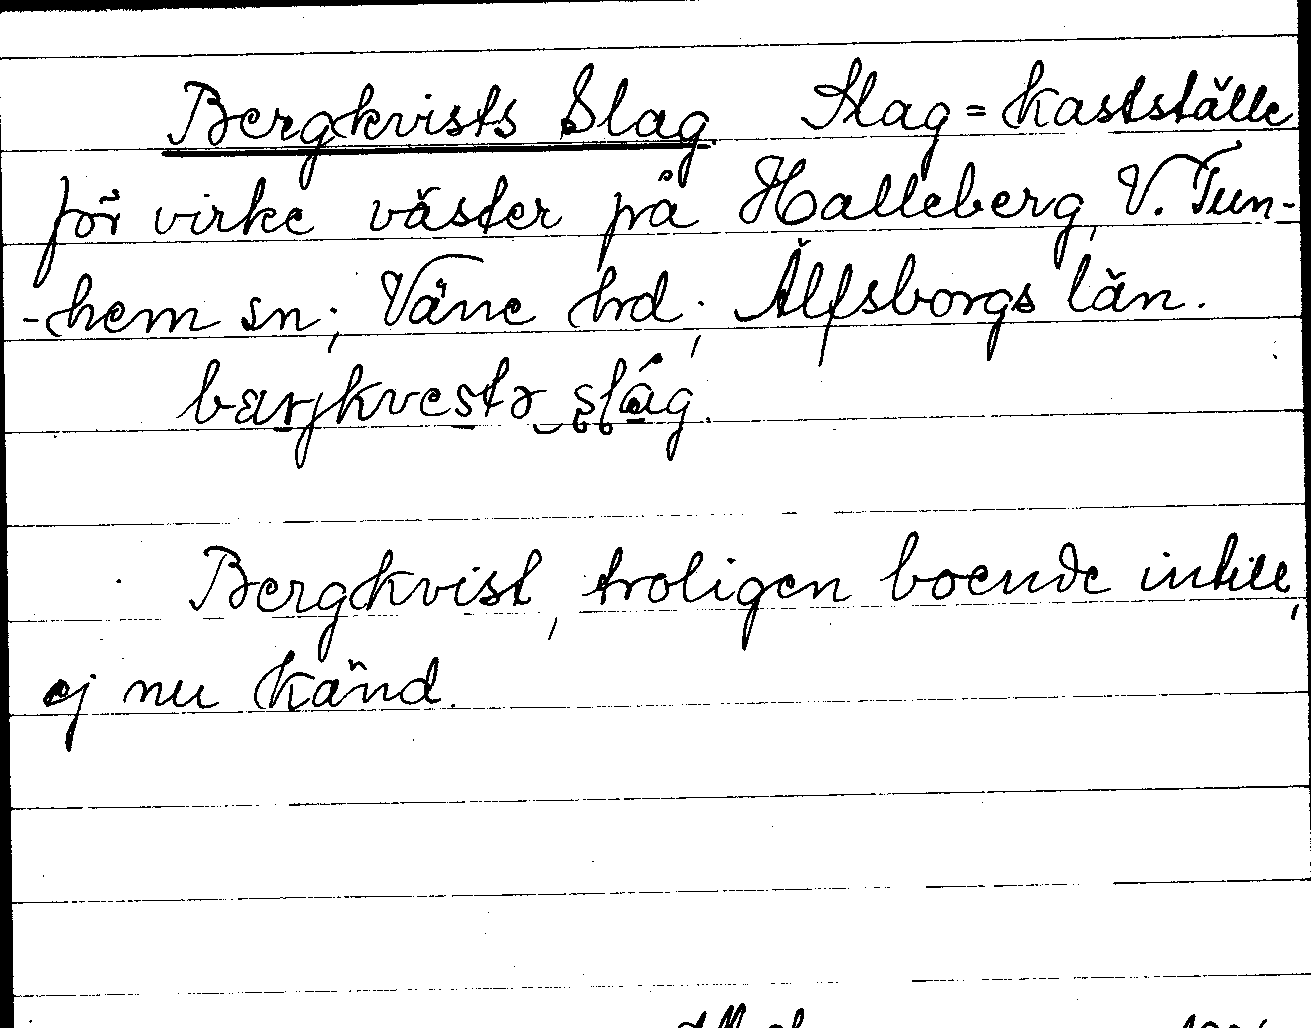 Bergkvists Slag. Slag = Kastställe
för virke väster på Halleberg, V. Tun-
-hem sn; Väne hrd; Älfsborgs län.
Bergkvist, troligen boende intill,
ej nu känd.